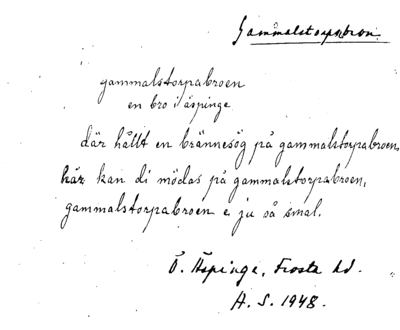 Gammalstorpabron
gammalstorpabroen
en bro i äspinge
där hållt en brännesög på gammalstorpabroen,
här kan di mödas på gammalstorpabroen,
gammalstorpabroen e ju så smal.
Ö. Äspinge, Frosta hd.
A. S. 1948.